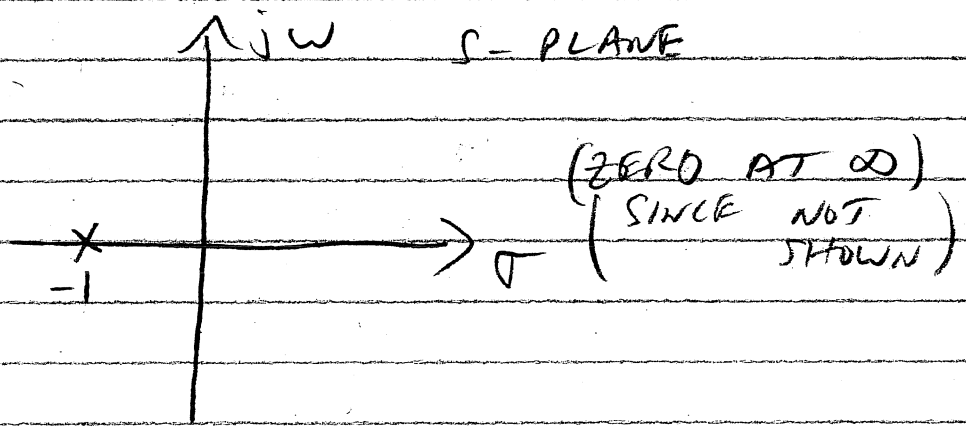 jω S-PLANE
(ZERO AT ∞)
(SINCE NOT
SHOWN)
-1 σ